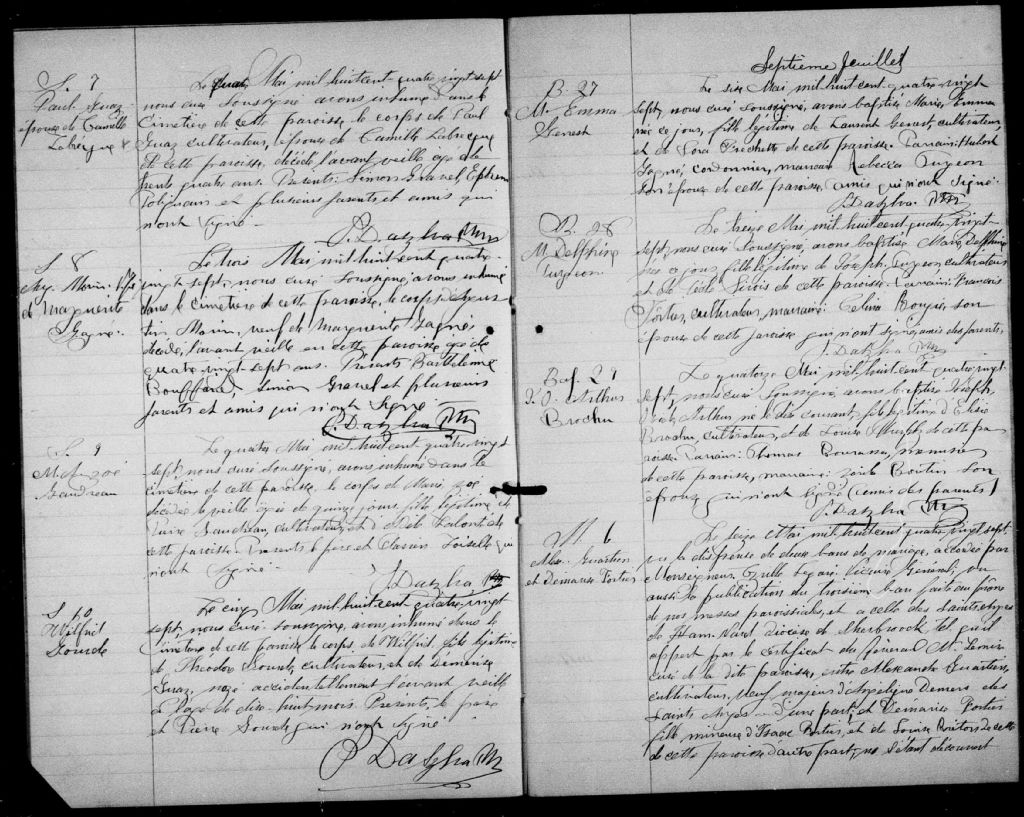 S. 7
Paul Guaz
épouse de Camille
Labrecque
Le quatre Mai mil huit cent quatre vingt sept
nous curé soussigné avons inhumé dans le
Cimetière de cette paroisse le corps de Paul
Guaz cultivateur, épouse de Camille Labrecque
de cette paroisse, décédé l'avant veille agé de
trente quatre ans. Présents: Simon Gravel, Ephrem
et plusieurs parents et amis qui
n'ont signé
J. Datzha Ptre
S 8
Aug. Marin
de Marguerite
Gagné.
Le trois Mai mil huit cent quatre
vingt sept, nous curé soussigné, avons inhumé
dans le cimetière de cette paroisse, le corps d'Augus
tin Marin, veuf de Marguerite Gagné,
décédé, l'avant veille en cette paroisse agé de
quatre vingt sept ans. Présents Barthélemie
Bouffard, Simon Gravel et plusieurs
parents et amis qui n'ont signé.
J. Datzha Ptre
S. 9
M. Anzoé
Gaudreau
Le quatre Mai mil huit cent quatre vingt
sept, nous curé soussigné, avons inhumé dans le
cimetière de cette paroisse le corps de Marie zoé
décédée la veille agée de quinze jours fille légitime de
Pierre Gaudreau, cultivateur, et d' de
cette paroisse. Présents le père et Loiselle qui
n'ont signé.
J. Datzha Ptre
S 10
Wilfrid
Gourde
Le cinq Mai mil huit cent quatre vingt
sept, nous curé soussigné, avons inhumé dans le
Cimetière de cette paroisse le corps de Wilfrid, fils légitime
de Théodore Gourde, cultivateur, et de Démerise
Guaz, noyé accidentellement l'avant veille
à l'age de dix-huit mois. Présents, le père
et Pierre Gourde qui n'ont signé.
J. Datzha Ptre
Septième feuillet
B. 27
M. Emma
Genest
Le six Mai mil huit cent quatre vingt
sept, nous curé soussigné, avons baptisé Marie, Emma
née ce jour, fille légitime de Laurent Genest, cultivateur,
et de Lora Brechette de cette paroisse. Parrain: Hubert
Gagné, cordonnier, marraine Rebecca Turgeon
son épouse de cette paroisse, amis qui n'ont signé.
J. Datzha Ptre
B. 28
M. Delphine
Turgeon
Le treize Mai, mil huit cent, quatre, vingt-
sept, nous curé soussigné, avons baptisé Marie, Delphine
née ce jour, fille légitime de Joseph Turgeon cultivateur
et de Cédé Sirois de cette paroisse. Parrain: François
Fortier, cultivateur, marraine: Célina Bougie, son
épouse de cette paroisse qui n'ont signé, amis des parents.
J. Datzha Ptre
Bap. 29
J. O. Arthur
Brochu
Le quatorze Mai mil huit cent quatre vingt
sept, nous curé soussigné avons baptisé Joseph,
Arthur né le dix courant, fils légitime d'Elisée
Brochu, cultivateur, et de Louise de cette pa
roisse. Parrain: Thomas Bourassa, menuisier
de cette paroisse, marraine: Zoïle Boutin son
épouse qui n'ont signé (amis des parents)
J. Datzha Ptre
M. 6
Alex. Guertin
et Demarise Fortier
Le seize Mai mil huit cent quatre vingt sept
vu la dispense de deux bans de mariage, accordée par
Monseigneur Légaré Vicaire Général; vu
aussi la publication du troisième ban faite au prône
de nos messes paroissiales, et à celle des Saints Anges
de Ham Nord, diocèse de Sherbrooke, tel qu'il
appert par le certificat du révérend M. Lemire
curé de la dite paroisse, entre Alexandre Guertin,
cultivateur, veuf majeur d'Angélique Demers des
Saints Anges d'une part; et Demarise Fortier
fille mineure d'Isaac Fortier, et de Louise Boutin de cette
de cette paroisse d'autre part; ne s'étant découvert